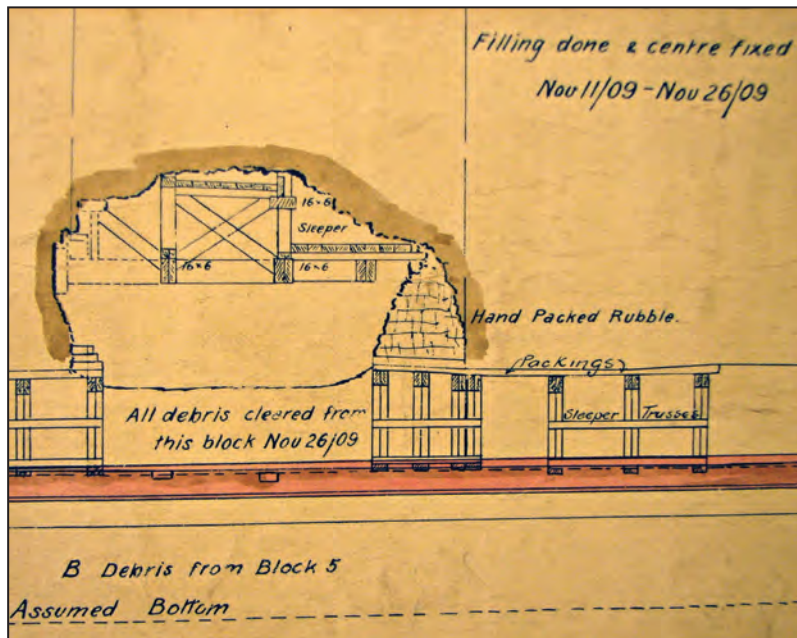 Filling done & centre fixed
Nov 11/09 - Nov 26/09
16×6
Sleeper
16×6
16×6
Hand Packed Rubble.
(Packings)
All debris cleared from
this block Nov 26/09
Sleeper Trusses
B Debris from Block 5
Assumed Bottom